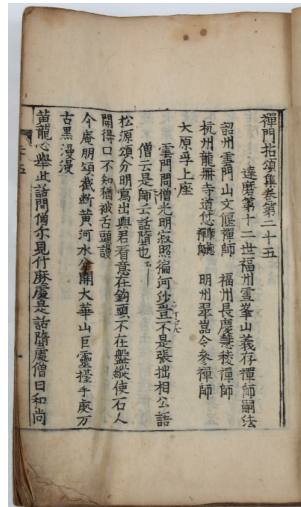 禪門拈頌集卷第二十五
達磨第十二世福州雪峯山義存禪師嗣法
韶州雲門山文偃禪師 福州長慶慧稜禪師
杭州龍冊寺道怤禪師 明州翠嵓令參禪師
大原孚上座
雲門問僧光明寂照徧河沙豈不是張拙相公語
僧云是師云話墮也
松源頌分明寫出與君看意在鉤頭不在盤縱使石人
開得口不知猶被舌頭謾
介庵朋頌截斷黃河水分開大華山巨靈擡手處万
古黑漫漫
黃龍心舉此話問僧你見什麽處是話墮處僧曰和尚
二十五